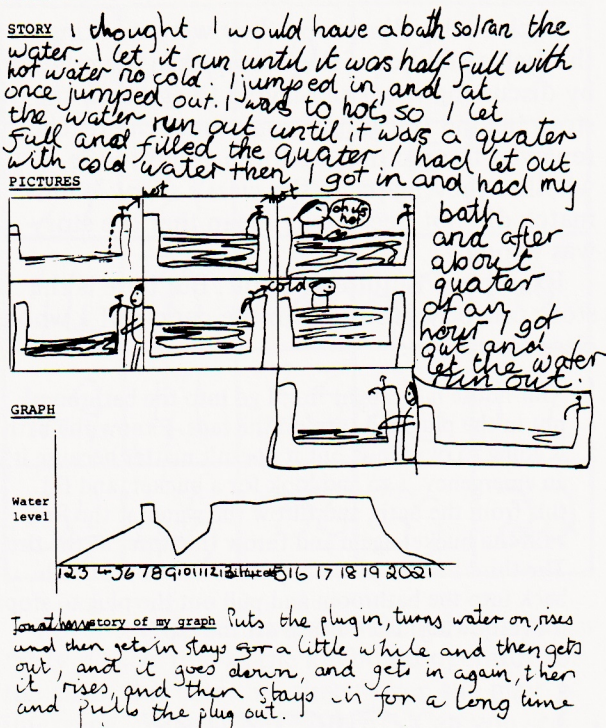 STORY I thought I would have a bath so I ran the
water. I let it run until it was half full with
hot water no cold. I jumped in, and at
once jumped out. I was to hot, so I let
the water run out until it was a quater
full and filled the quater I had let out
with cold water then I got in and had my
bath
and after
about
quater
of an
hour I got
out and
let the water
run out.
PICTURES
hot
hot
oh it's
hot
cold
GRAPH
Water
level
1 2 3 4 5 6 7 8 9 10 11 12 13 15 16 17 18 19 20 21
Jonathan's story of my graph Puts the plug in, turns water on, rises
and then gets in stays for a little while and then gets
out, and it goes down, and gets in again, then
it rises, and then stays in for a long time
and pulls the plug out.